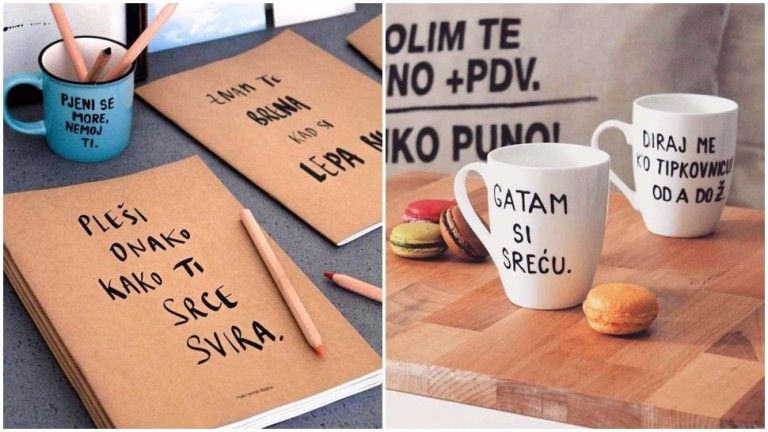 PJENI SE
MORE,
NEMOJ
TI.
ZNAM TI
BRENA
KAO SI
LEPA
PLEŠI
ONAKO
KAKO TI
SRCE
SVIRA.
OLIM TE
NO +PDV.
KO PUNO!
GATAM
SI
SREĆU.
DIRAJ ME
KO TIPKOVNICU
OD A DO Ž.